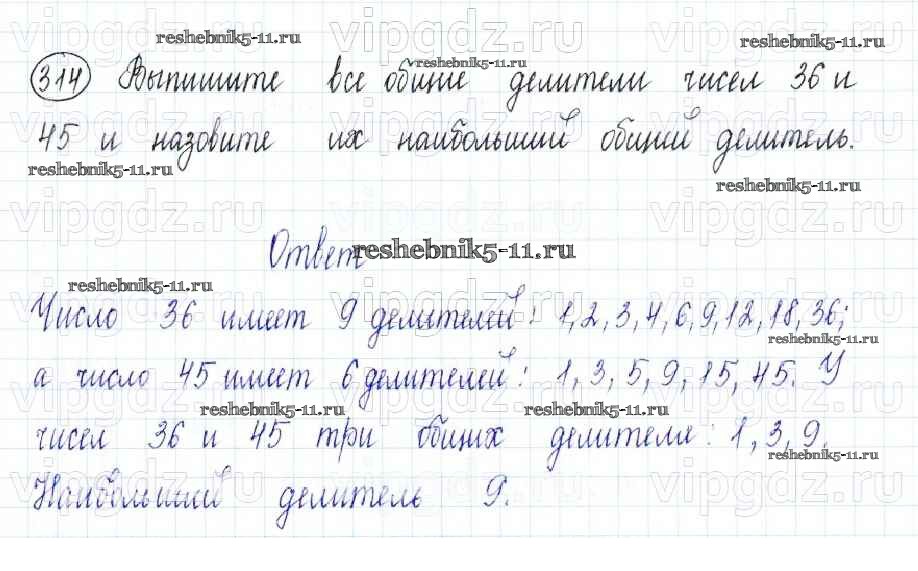 reshebnik5-11.ru
reshebnik5-11.ru
reshebnik5-11.ru
314 Выпишите все общие делители чисел 36 и
45 и назовите их наибольший общий делитель.
reshebnik5-11.ru
reshebnik5-11.ru
vipgdz.ru vipgdz.ru vipgdz.ru
Ответ reshebnik5-11.ru
reshebnik5-11.ru
Число 36 имеет 9 делителей: 1,2,3,4,6,9,12,18,36;
reshebnik5-11.ru
а число 45 имеет 6 делителей: 1,3,5,9,15,45. У
reshebnik5-11.ru reshebnik5-11.ru
чисел 36 и 45 три общих делителя: 1,3,9.
reshebnik5-11.ru
Наибольший делитель 9.
vipgdz.ru vipgdz.ru vipgdz.ru